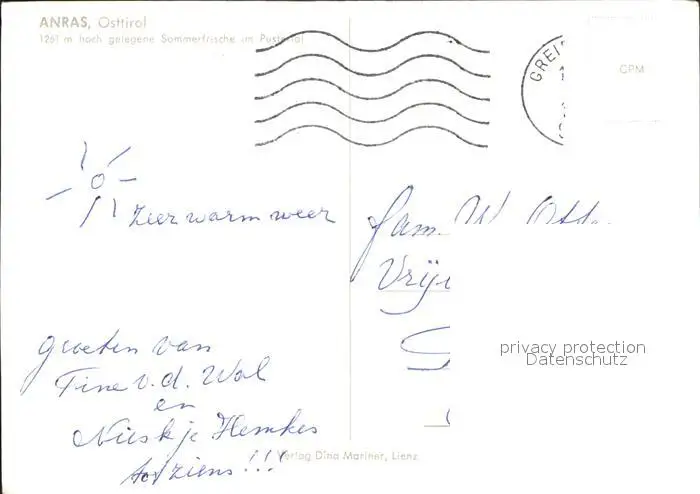 ANRAS, Osttirol
1261 m hoch gelegene Sommerfrische im Pustertal
GREI
GPM
Zeer warm weer
fam. W. Ott
Vrij
privacy protection
Datenschutz
groeten van
Tine v.d. Wal
en
Nieskje Hemkes
tot ziens!!!
Verlag Dina Mariner, Lienz